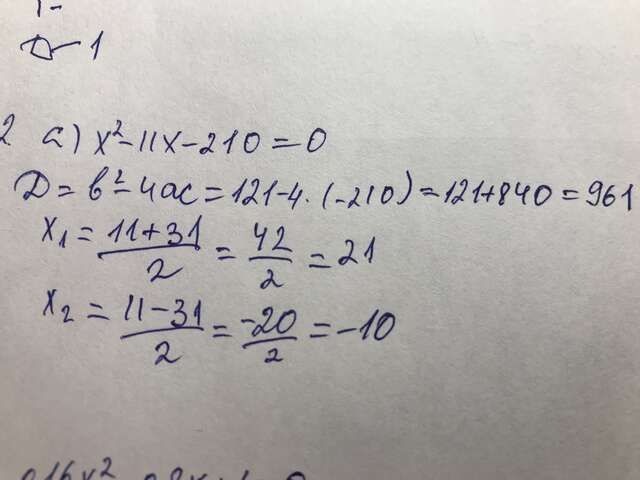 2 а) x²-11x-210=0
D=b²-4ac=121-4·(-210)=121+840=961
x₁=(11+31)/2=42/2=21
x₂=(11-31)/2=-20/2=-10